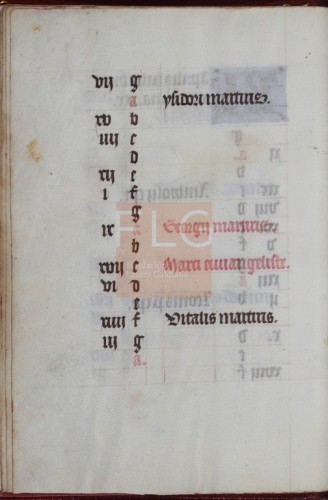 vij g
a ysidori martiris.
xv b
iiij c
d
xij e
i f
g
ix a Georgij martiris.
b
xvij c Marci euuangeliste.
vi d
e
xiiij f Vitalis martiris.
iij g
a.
FLG